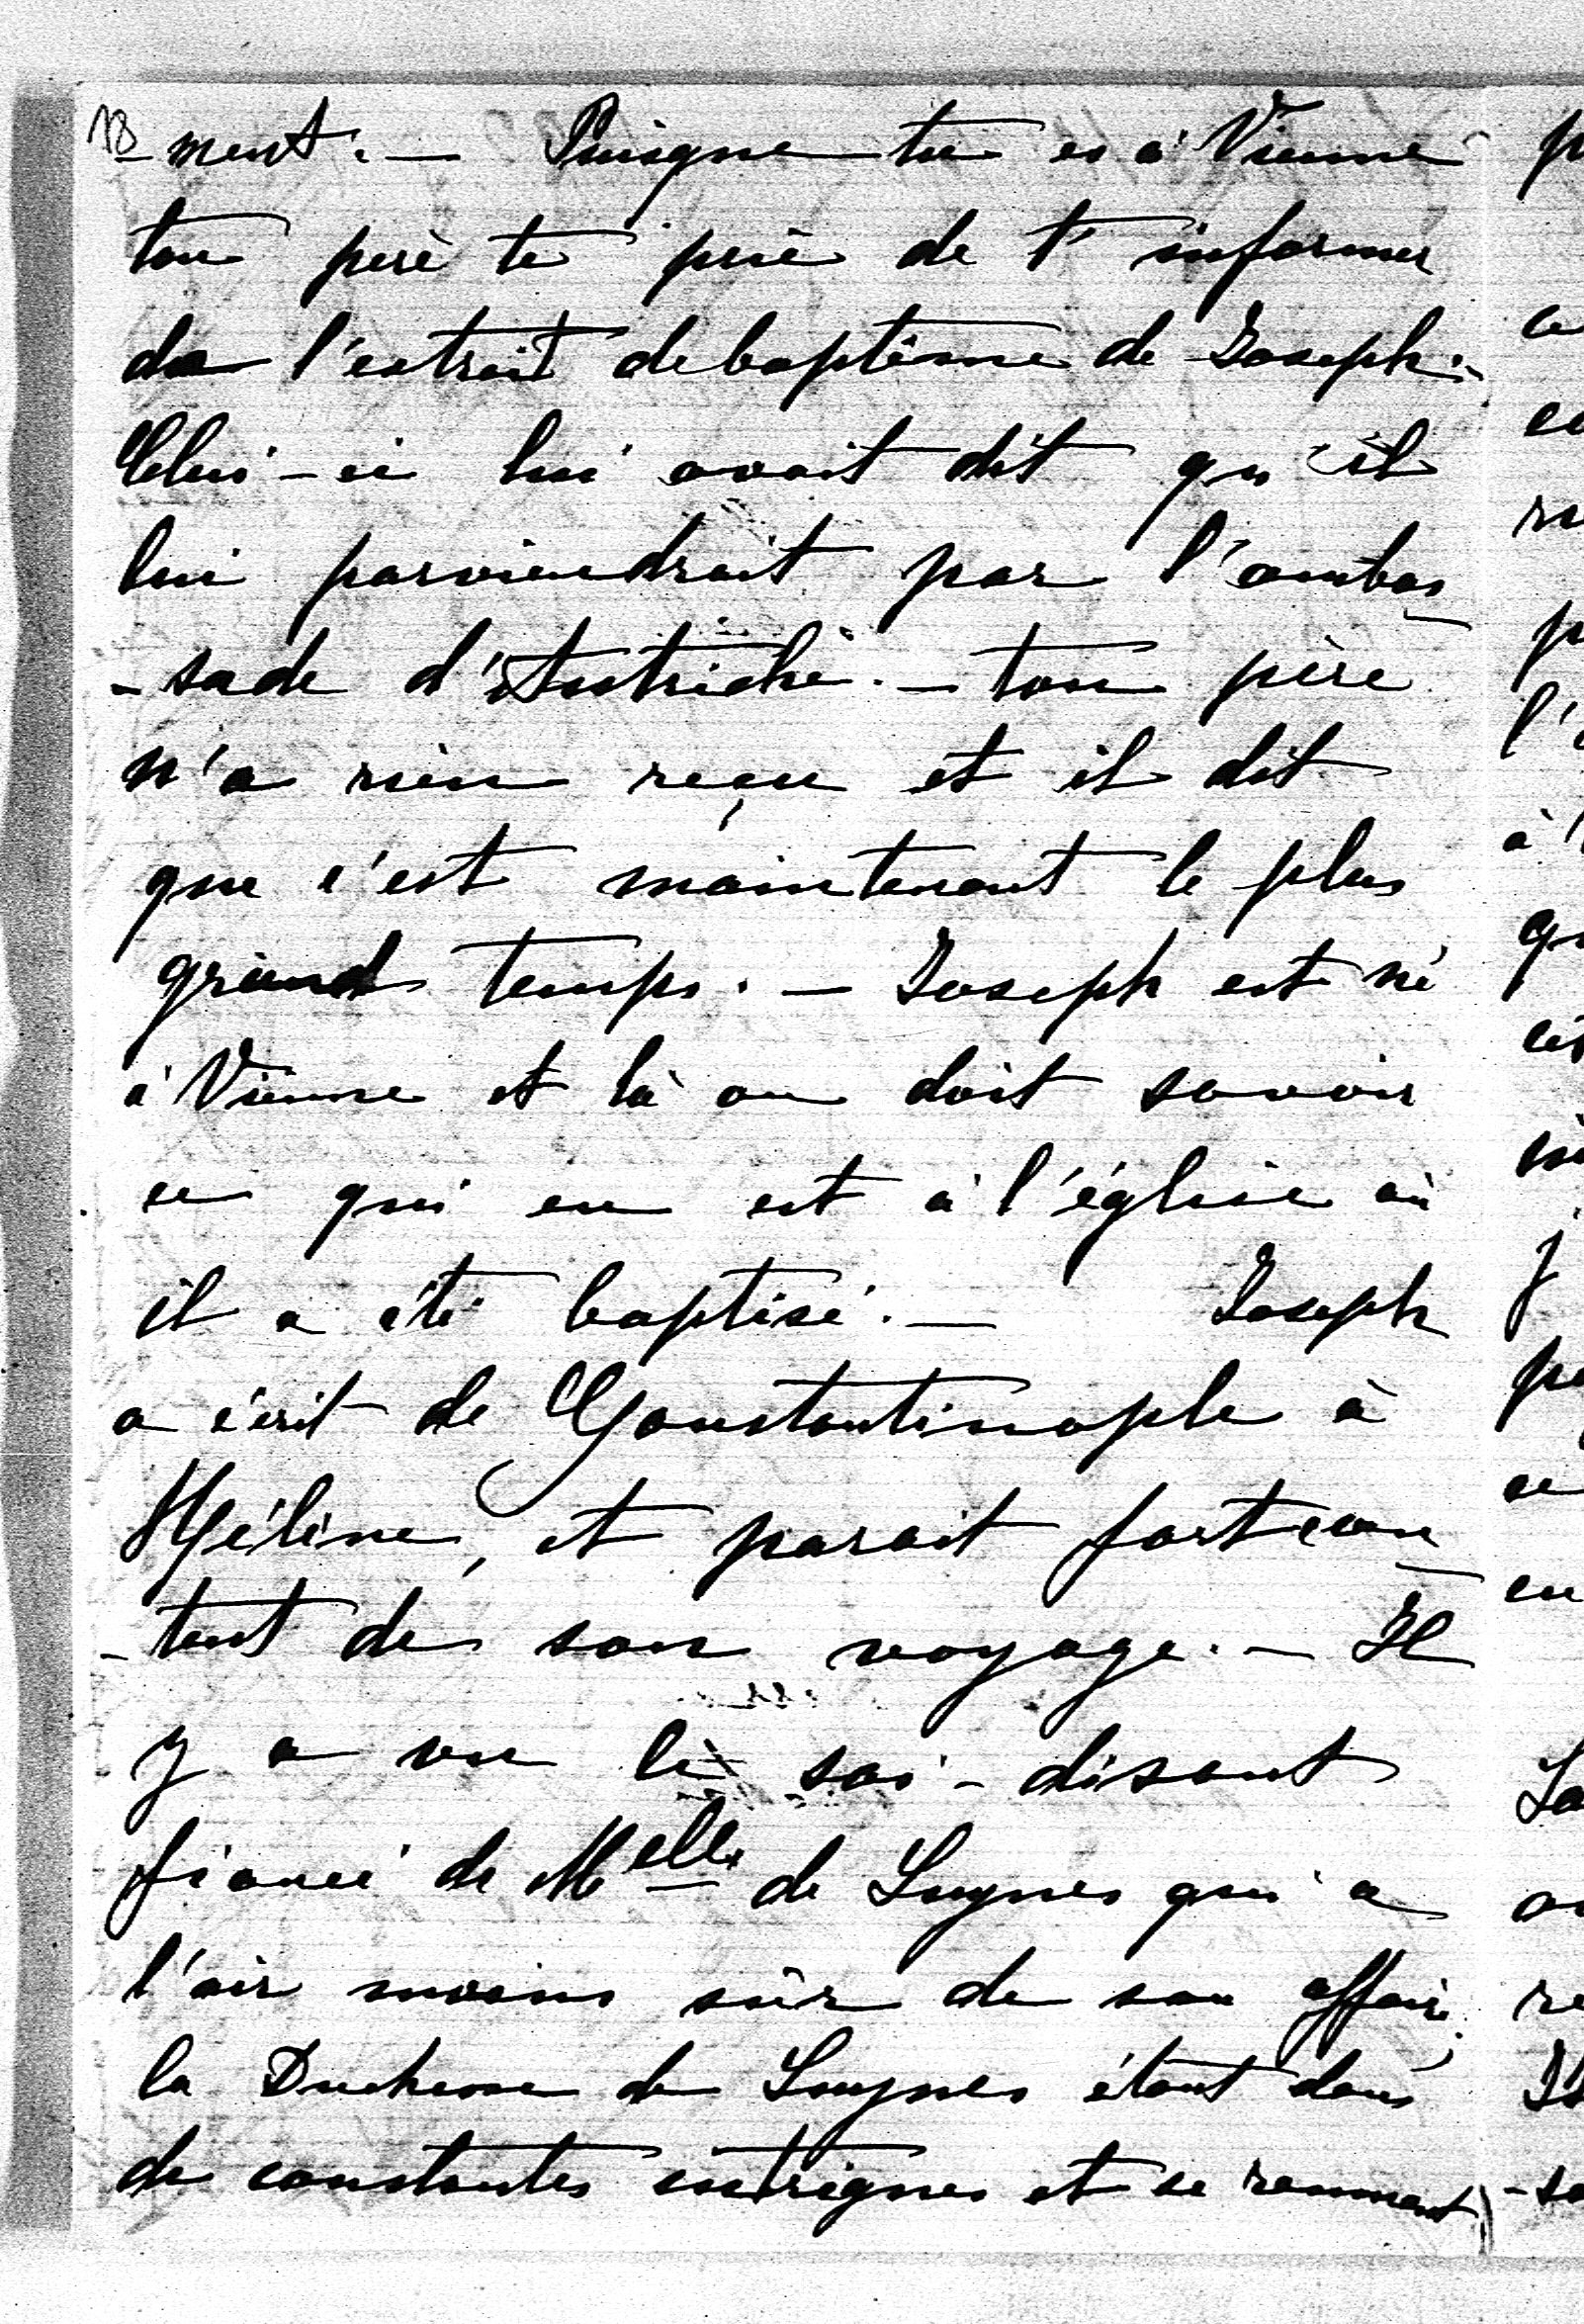 18
-ment. — Puisque tu es à Vienne
ton père te prie de t'informer
de l'extrait de baptême de Joseph.
Celui-ci lui avait dit qu'il
lui parviendrait par l'ambas
-sade d'Autriche. — ton père
n'a rien reçu et il dit
que c'est maintenant le plus
grand temps. — Joseph est né
à Vienne et là on doit savoir
ce qui en est à l'église où
il a été baptisé. — Joseph
a écrit de Constantinople à
Hélène, et parait fort con
-tent de son voyage. — Il
y a vu le soi-disant
fiancé de Melle de Luynes qui a
l'air moins sûr de son affaire;
la Duchesse de Luynes étant dans
de constantes intrigues et se remuant